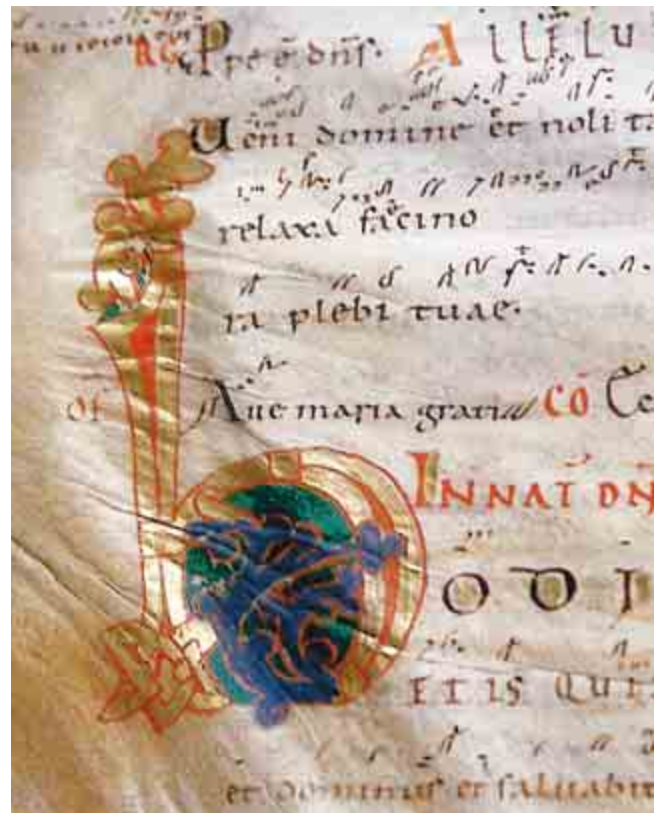 RG Ppe ē dn̄s. ALLELU
Veni domine et noli ta
relaxa facino
ra plebi tuae.
Of Aue maria gratia CŌ Ec
IN NAT DN̄
hODI
ET IS QUI
et dominus et saluabit